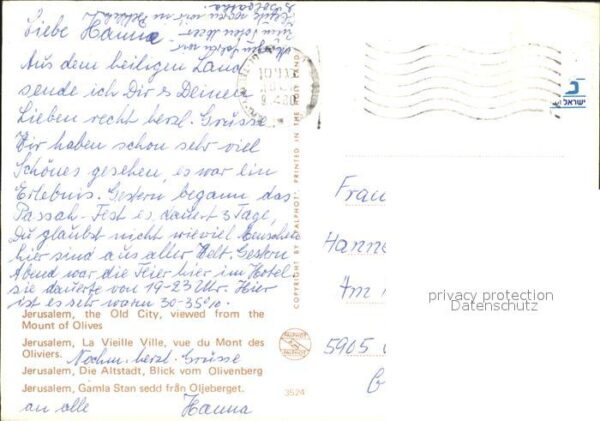 Liebe Hanna
Aus dem heiligen Land
sende ich Dir & Deinen
Lieben recht herzl. Grüsse.
Wir haben schon sehr viel
Schönes gesehen, es war ein
Erlebnis. Gestern begann das
Passah-Fest es dauert 3 Tage,
Du glaubst nicht wieviel Menschen
hier sind aus aller Welt. Gestern
Abend war die Feier hier im Hotel
sie dauerte von 19-23 Uhr. Hier
ist es sehr warm 30-35°
Jerusalem, the Old City, viewed from the
Mount of Olives
Jerusalem, La Vieille Ville, vue du Mont des
Oliviers.
Nochm. herzl. Grüsse
Jerusalem, Die Altstadt, Blick vom Olivenberg
Jerusalem, Gamla Stan sedd från Oljeberget.
an alle Hanna
3524
PALPHOT
COPYRIGHT BY "PALPHOT", PRINTED IN THE HOLY LAND
ישראל
Frau
Hanne
Am
5905
privacy protection
Datenschutz